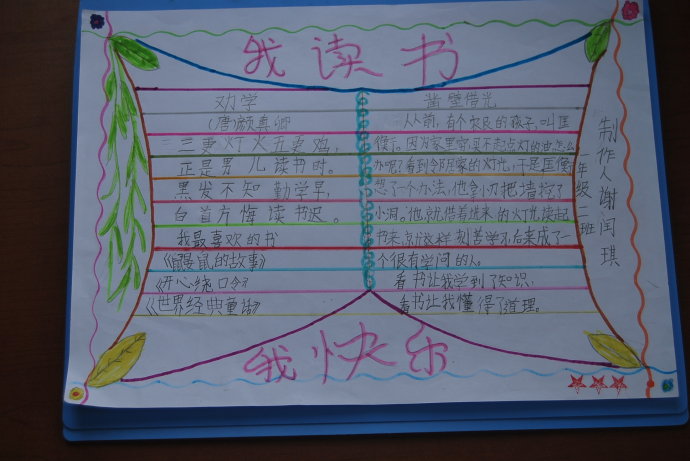 我读书
劝学
(唐)颜真卿
三更灯火五更鸡,
正是男儿读书时。
黑发不知勤学早,
白首方悔读书迟。
我最喜欢的书
《鼹鼠的故事》
《开心绕口令》
《世界经典童话》
凿壁借光
从前,有个农民的孩子,叫匡
衡。因为家里穷,买不起点灯的油,怎么
办呢?看到邻居家的灯光,于是匡衡
想了一个办法,他拿小刀把墙挖了
小洞。他就借着进来的灯光读起
书来,就这样刻苦学习,后来成了一
个很有学问的人。
看书让我学到了知识,
看书让我懂得了道理。
制作人谢闰琪
年级二班
我快乐